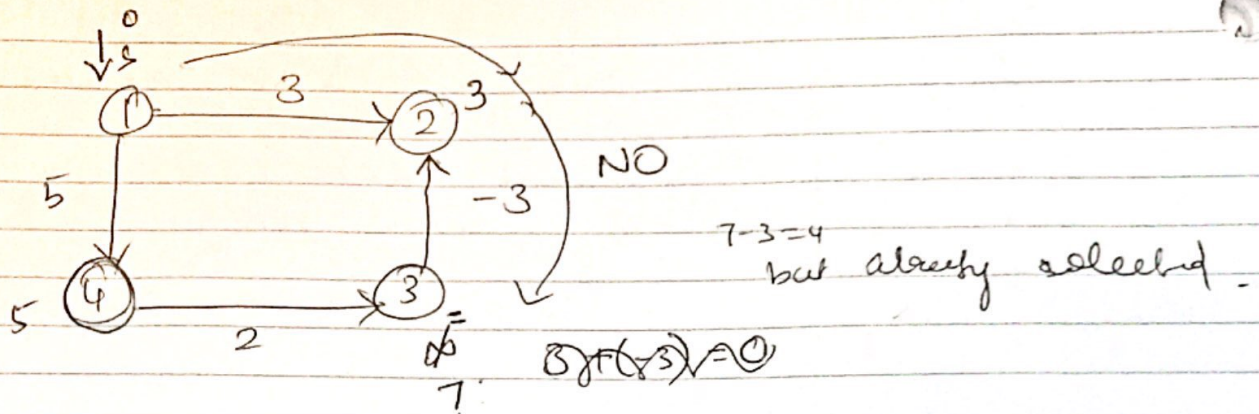 0
s
1 3 2 3
NO
5 -3
7-3=4
but already selected.
5 4 2 3
∞ =
7
3)+(-3) = 0